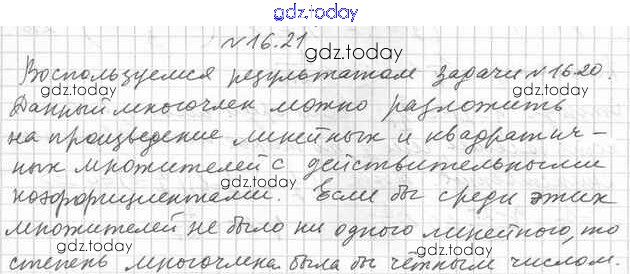 gdz.today
№16.21
gdz.today
Воспользуемся результатом задачи №16.20.
gdz.today
Данный многочлен можно разложить
gdz.today
на произведение линейных и квадратич-
gdz.today
ных множителей с действительными
gdz.today
коэффициентами. Если бы среди этих
множителей не было ни одного линейного, то
gdz.today gdz.today
степень многочлена была бы чётным числом.